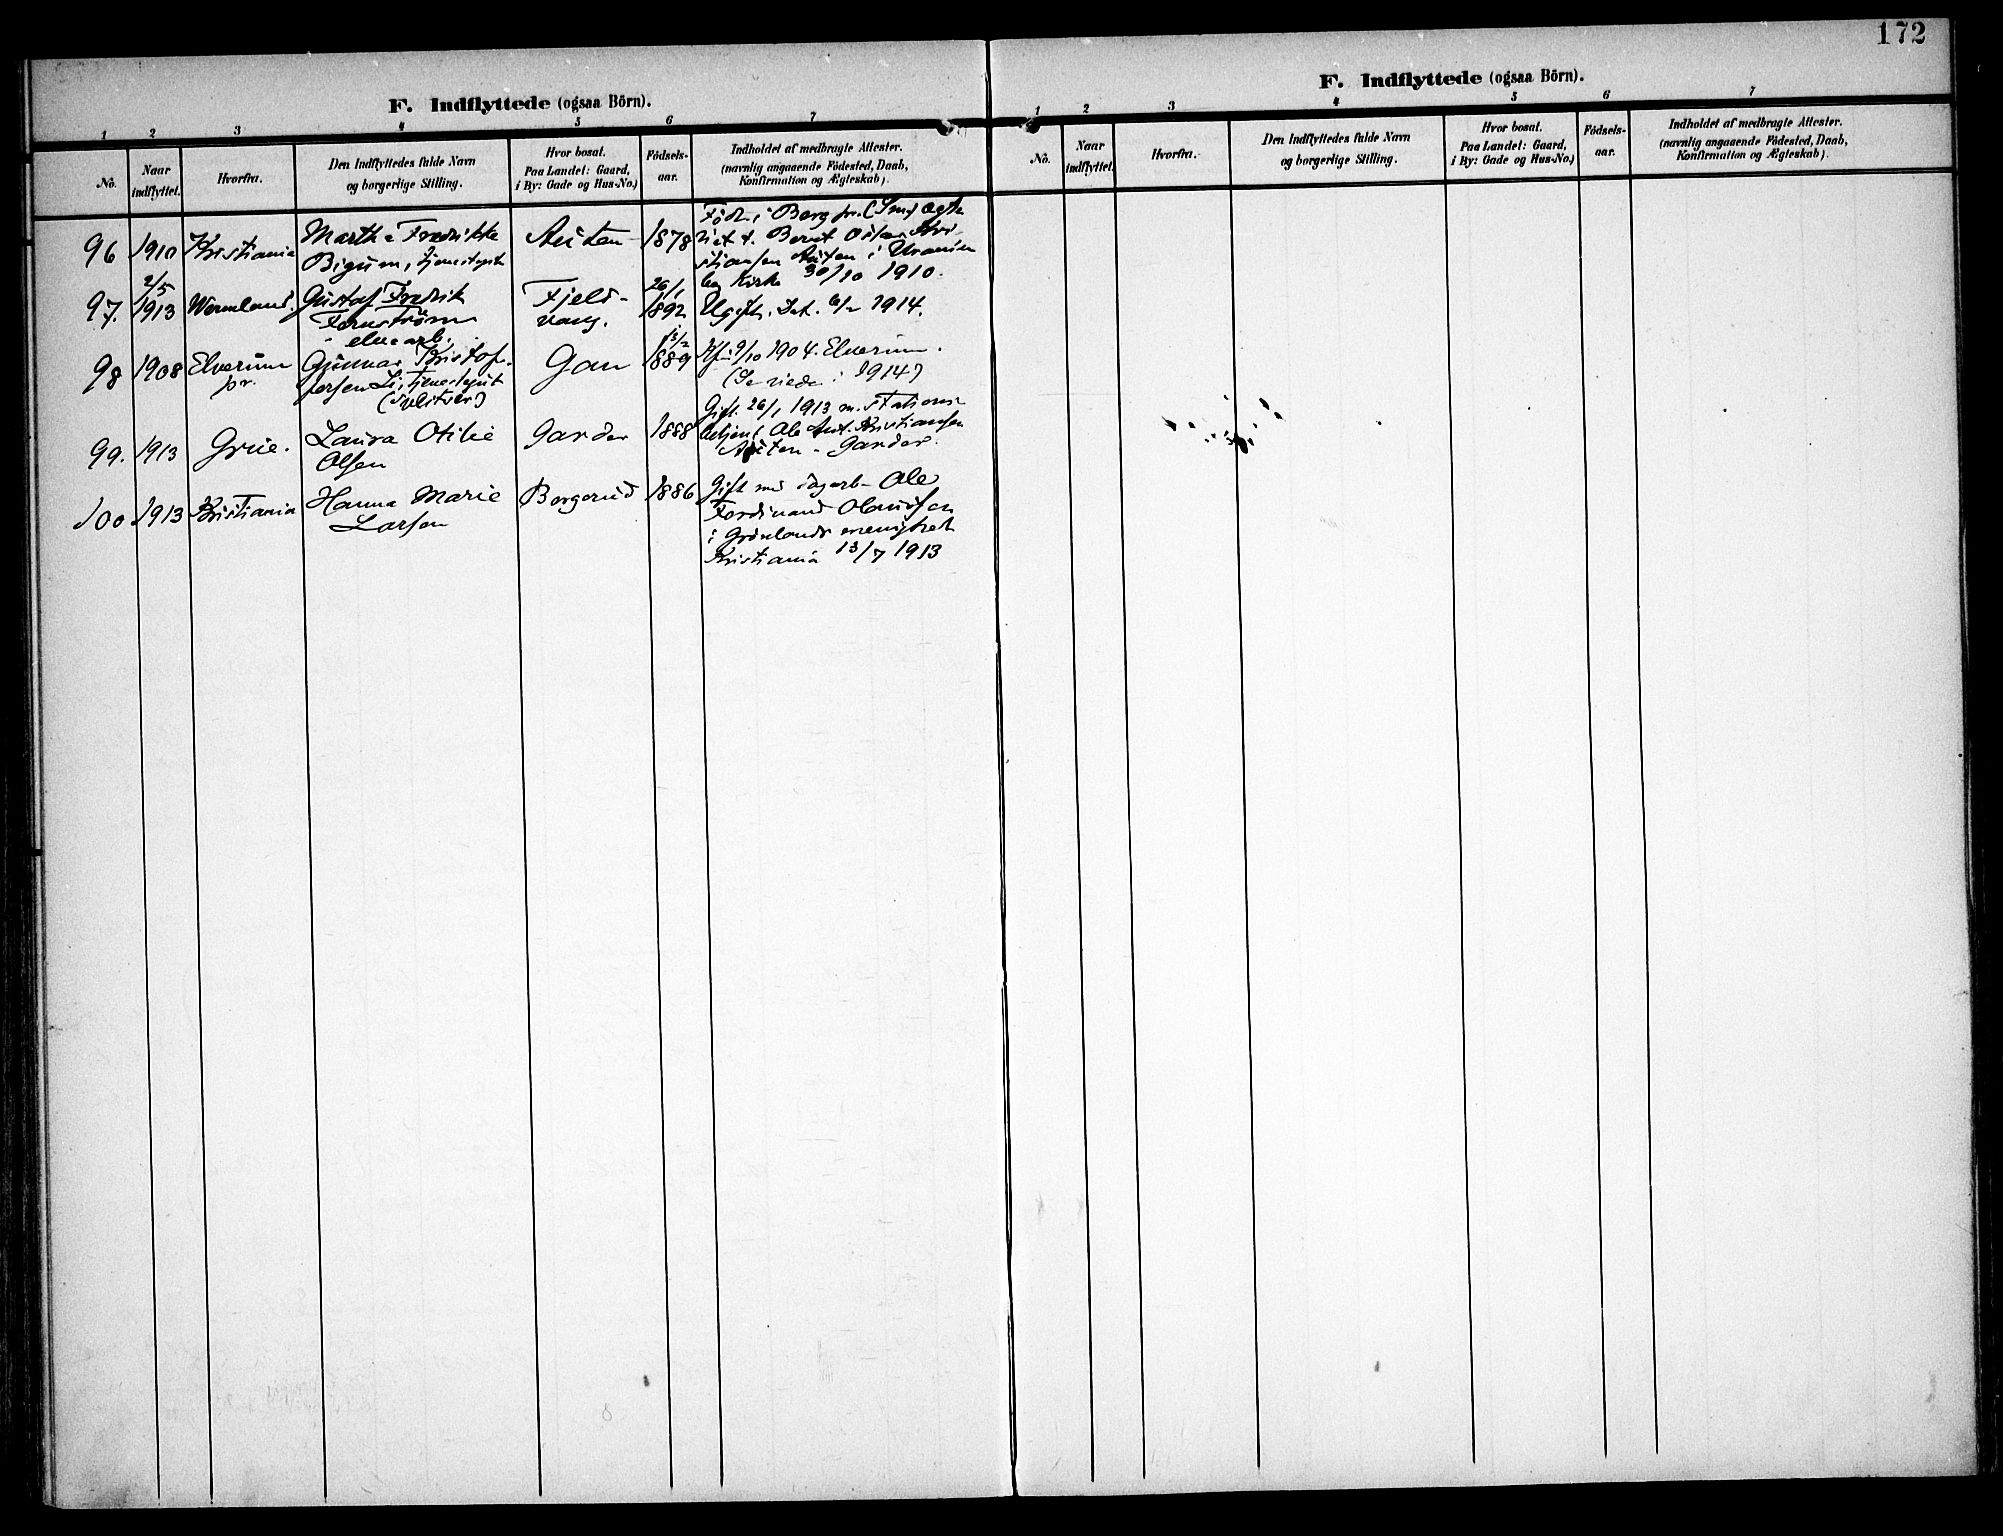 172
F. Indflyttede (ogsaa Börn).
1 2 3 4 5 6 7
No.
Naar indflyttet.
Hvorfra.
Den Indflyttedes fulde Navn
og borgerlige Stilling.
Hvor bosat.
Paa Landet: Gaard,
i By: Gade og Hus-No.)
Födsels-
aar.
Indholdet af medbragte Attester.
(navnlig angaaende Födested, Daab,
Konfirmation og Ægteskab).
96 1910 Kristiania
Marthe Fredrikke
Bigum, tjenestepike
Austen 1878
Född i Berg pr.
viet t. Bernt Oskar Kri-
stiansen Austen i Uranien
borg Kirke 30/10 1910.
97. 2/5
1913 Wermland.
Gustaf Fredrik
Fernström
elvearb.
Fjeld-
vang.
26/1
1892
Ugift. Dat. 1914.
98 1908 Elverum
pr.
Gunnar Kristof-
fersen Li, Tjenestegut
Gau
13/2
1889
Kfm 9/10 1904. Elverum.
(Se 1914)
99. 1913 Grue.
Laura Otilie
Olsen
Garder 1888
Gift 26/1 1913 m. Stations-
betjent Ole Ant. Kristiansen
Austen - Garder.
100 1913 Kristiania
Hanna Marie
Larsen
Borgerud 1886
Gift med dagarb. Ole
Ferdinand Olausen
i Grönlands menighet
Kristiania 13/7 1913
F. Indflyttede (ogsaa Börn).
1 2 3 4 5 6 7
No.
Naar
indflyttet.
Hvorfra.
Den Indflyttedes fulde Navn
og borgerlige Stilling.
Hvor bosat.
Paa Landet: Gaard,
i By: Gade og Hus-No.)
Födsels-
aar.
Indholdet af medbragte Attester.
(navnlig angaaende Födested, Daab,
Konfirmation og Ægteskab).